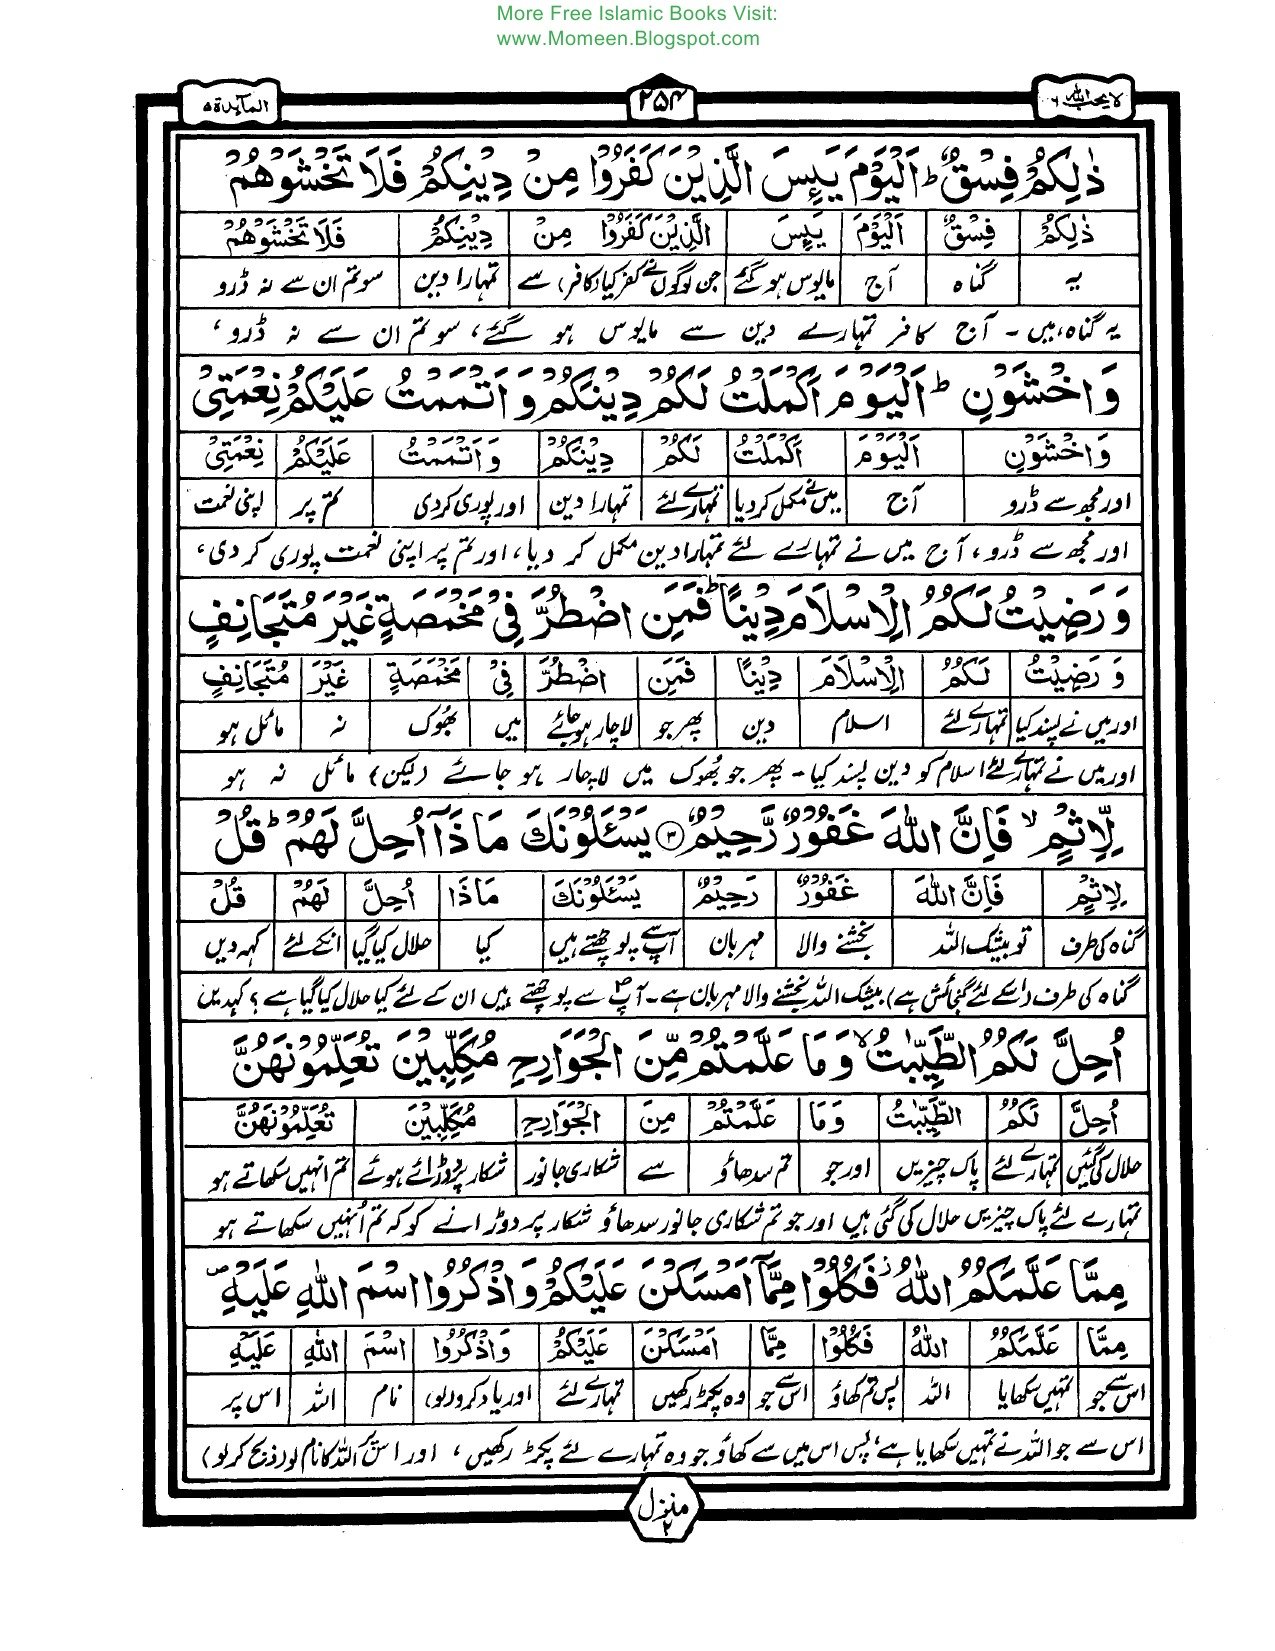 More Free Islamic Books Visit:
www.Momeen.Blogspot.com
لا یحب اللہ ٦
۲۵۴
المآئدة ۵
ذٰلِكُمْ فِسْقٌ ؕ اَلْيَوْمَ يَئِسَ الَّذِيْنَ كَفَرُوْا مِنْ دِيْنِكُمْ فَلَا تَخْشَوْهُمْ
ذٰلِكُمْ فِسْقٌ اَلْيَوْمَ يَئِسَ الَّذِيْنَ كَفَرُوْا مِنْ دِيْنِكُمْ فَلَا تَخْشَوْهُمْ
یہ گناہ آج مایوس ہو گئے جن لوگوں نے کفر کیا (کافر) سے تمہارا دین سو تم ان سے نہ ڈرو
یہ گناہ ہیں - آج کافر تمہارے دین سے مایوس ہو گئے، سو تم ان سے نہ ڈرو،
وَاخْشَوْنِ ؕ اَلْيَوْمَ اَكْمَلْتُ لَكُمْ دِيْنَكُمْ وَاَتْمَمْتُ عَلَيْكُمْ نِعْمَتِيْ
وَاخْشَوْنِ اَلْيَوْمَ اَكْمَلْتُ لَكُمْ دِيْنَكُمْ وَاَتْمَمْتُ عَلَيْكُمْ نِعْمَتِيْ
اور مجھ سے ڈرو آج میں نے مکمل کردیا تمہارے لئے تمہارا دین اور پوری کردی تم پر اپنی نعمت
اور مجھ سے ڈرو، آج میں نے تمہارے لئے تمہارا دین مکمل کر دیا، اور تم پر اپنی نعمت پوری کر دی،
وَرَضِيْتُ لَكُمُ الْاِسْلَامَ دِيْنًا ؕ فَمَنِ اضْطُرَّ فِيْ مَخْمَصَةٍ غَيْرَ مُتَجَانِفٍ
وَرَضِيْتُ لَكُمُ الْاِسْلَامَ دِيْنًا فَمَنِ اضْطُرَّ فِيْ مَخْمَصَةٍ غَيْرَ مُتَجَانِفٍ
اور میں نے پسند کیا تمہارے لئے اسلام دین پھر جو لاچار ہو جائے میں بھوک نہ مائل ہو
اور میں نے تمہارے لئے اسلام کو دین پسند کیا - پھر جو بھوک میں لاچار ہو جائے (لیکن) مائل نہ ہو
لِّاِثْمٍ ۙ فَاِنَّ اللّٰهَ غَفُوْرٌ رَّحِيْمٌ ۳ يَسْئَلُوْنَكَ مَاذَآ اُحِلَّ لَهُمْ ؕ قُلْ
لِاِثْمٍ فَاِنَّ اللّٰهَ غَفُوْرٌ رَحِيْمٌ يَسْئَلُوْنَكَ مَاذَا اُحِلَّ لَهُمْ قُلْ
گناہ کی طرف تو بیشک اللہ بخشنے والا مہربان آپ سے پوچھتے ہیں کیا حلال کیا گیا انکے لئے کہہ دیں
گناہ کی طرف (اسکے لئے گنجائش ہے) بیشک اللہ بخشنے والا مہربان ہے - آپؐ سے پوچھتے ہیں ان کے لئے کیا حلال کیا گیا ہے؟ کہدیں
اُحِلَّ لَكُمُ الطَّيِّبٰتُ ۙ وَمَا عَلَّمْتُمْ مِّنَ الْجَوَارِحِ مُكَلِّبِيْنَ تُعَلِّمُوْنَهُنَّ
اُحِلَّ لَكُمُ الطَّيِّبٰتُ وَمَا عَلَّمْتُمْ مِنَ الْجَوَارِحِ مُكَلِّبِيْنَ تُعَلِّمُوْنَهُنَّ
حلال کی گئیں تمہارے لئے پاک چیزیں اور جو تم سدھاؤ سے شکاری جانور شکار پر دوڑائے ہوئے تم انہیں سکھاتے ہو
تمہارے لئے پاک چیزیں حلال کی گئی ہیں اور جو تم شکاری جانور سدھاؤ شکار پر دوڑانے کو کہ تم اُنہیں سکھاتے ہو
مِمَّا عَلَّمَكُمُ اللّٰهُ ؗ فَكُلُوْا مِمَّآ اَمْسَكْنَ عَلَيْكُمْ وَاذْكُرُوا اسْمَ اللّٰهِ عَلَيْهِ ۪
مِمَّا عَلَّمَكُمُ اللّٰهُ فَكُلُوْا مِمَّا اَمْسَكْنَ عَلَيْكُمْ وَاذْكُرُوا اسْمَ اللّٰهِ عَلَيْهِ
اس سے جو تمہیں سکھایا اللہ پس تم کھاؤ اس سے جو وہ پکڑ رکھیں تمہارے لئے اور یاد کرو (لو) نام اللہ اس پر
اس سے جو اللہ نے تمہیں سکھایا ہے، پس اس میں سے کھاؤ جو وہ تمہارے لئے پکڑ رکھیں، اور اس پر اللہ کا نام لو (ذبح کر لو)
منزل ٢